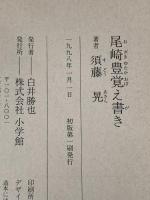 尾崎豊覚え書き
おざきゆたかおぼえがき
一九九八年一月一日 初版第一刷発行
著者 須藤 晃
すどう あきら
発行者 白井勝也
発行所 株式会社 小学館
〒一〇一-八〇〇一
印刷所
デザイ
造本には